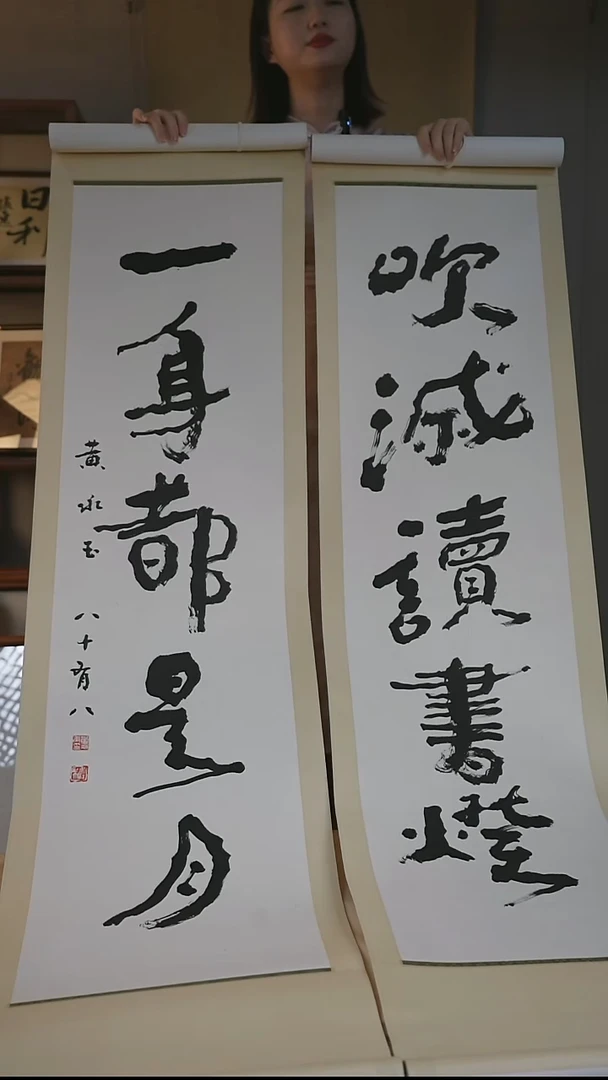 吹滅讀書燈
一身都是月
黃永玉 八十有八
日利